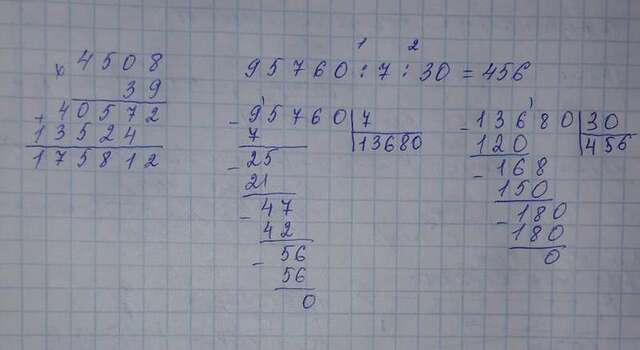 × 4508
39
+ 40572
13524
175812
1 2
95760 : 7 : 30 = 456
- 95760 | 7
7 13680
- 25
21
- 47
42
- 56
56
0
- 13680 | 30
120 456
- 168
150
- 180
180
0